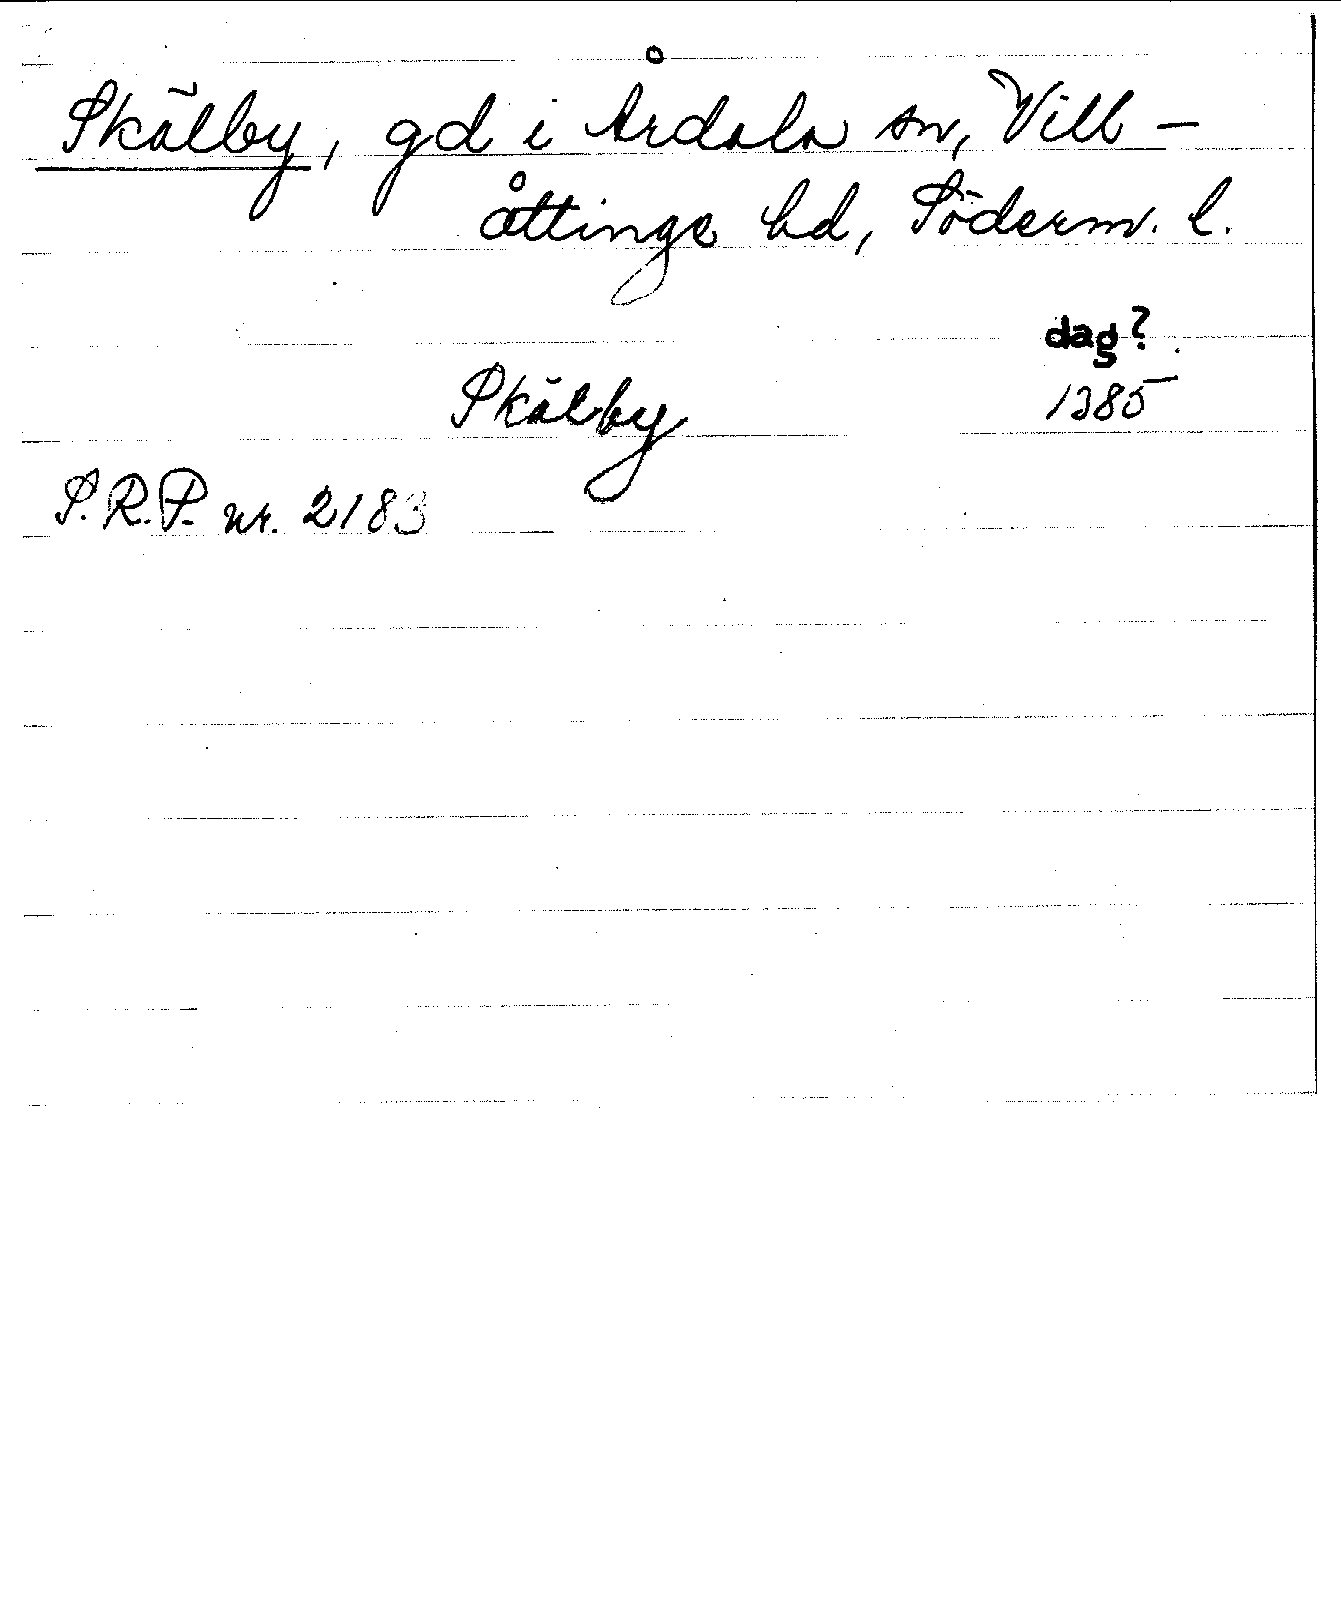 Skälby, gd i Årdala sn, Vill-
åttinge hd, Söderm. l.
dag?
Skälby 1385
S.R.P. nr. 2183